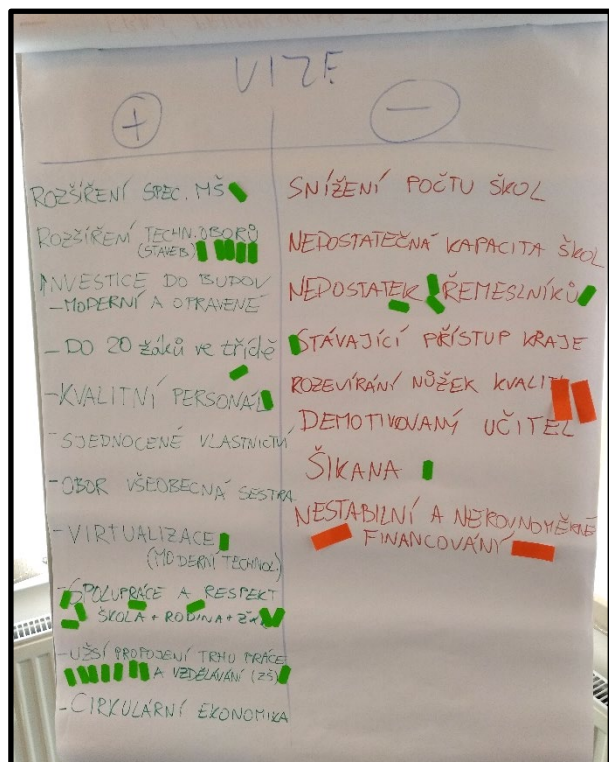 VIZE
+
ROZŠÍŘENÍ SPEC. MŠ
ROZŠÍŘENÍ TECHN. OBORŮ
(STAVEB)
INVESTICE DO BUDOV
- MODERNÍ A OPRAVENÉ
- DO 20 žáků ve třídě
- KVALITNÍ PERSONÁL
- SJEDNOCENÉ VLASTNICTVÍ
- OBOR VŠEOBECNÁ SESTRA
- VIRTUALIZACE
(MODERNÍ TECHNOL)
- SPOLUPRÁCE A RESPEKT
ŠKOLA + RODINA +
- UŽŠÍ PROPOJENÍ TRHU PRÁCE
A VZDĚLÁVÁNÍ (ZŠ)
- CIRKULÁRNÍ EKONOMIKA
−
SNÍŽENÍ POČTU ŠKOL
NEDOSTATEČNÁ KAPACITA ŠKOL
NEDOSTATEK ŘEMESLNÍKŮ
STÁVAJÍCÍ PŘÍSTUP KRAJE
ROZEVÍRÁNÍ NŮŽEK KVALITY
DEMOTIVOVANÝ UČITEL
ŠIKANA
NESTABILNÍ A NEROVNOMĚRNÉ
FINANCOVÁNÍ